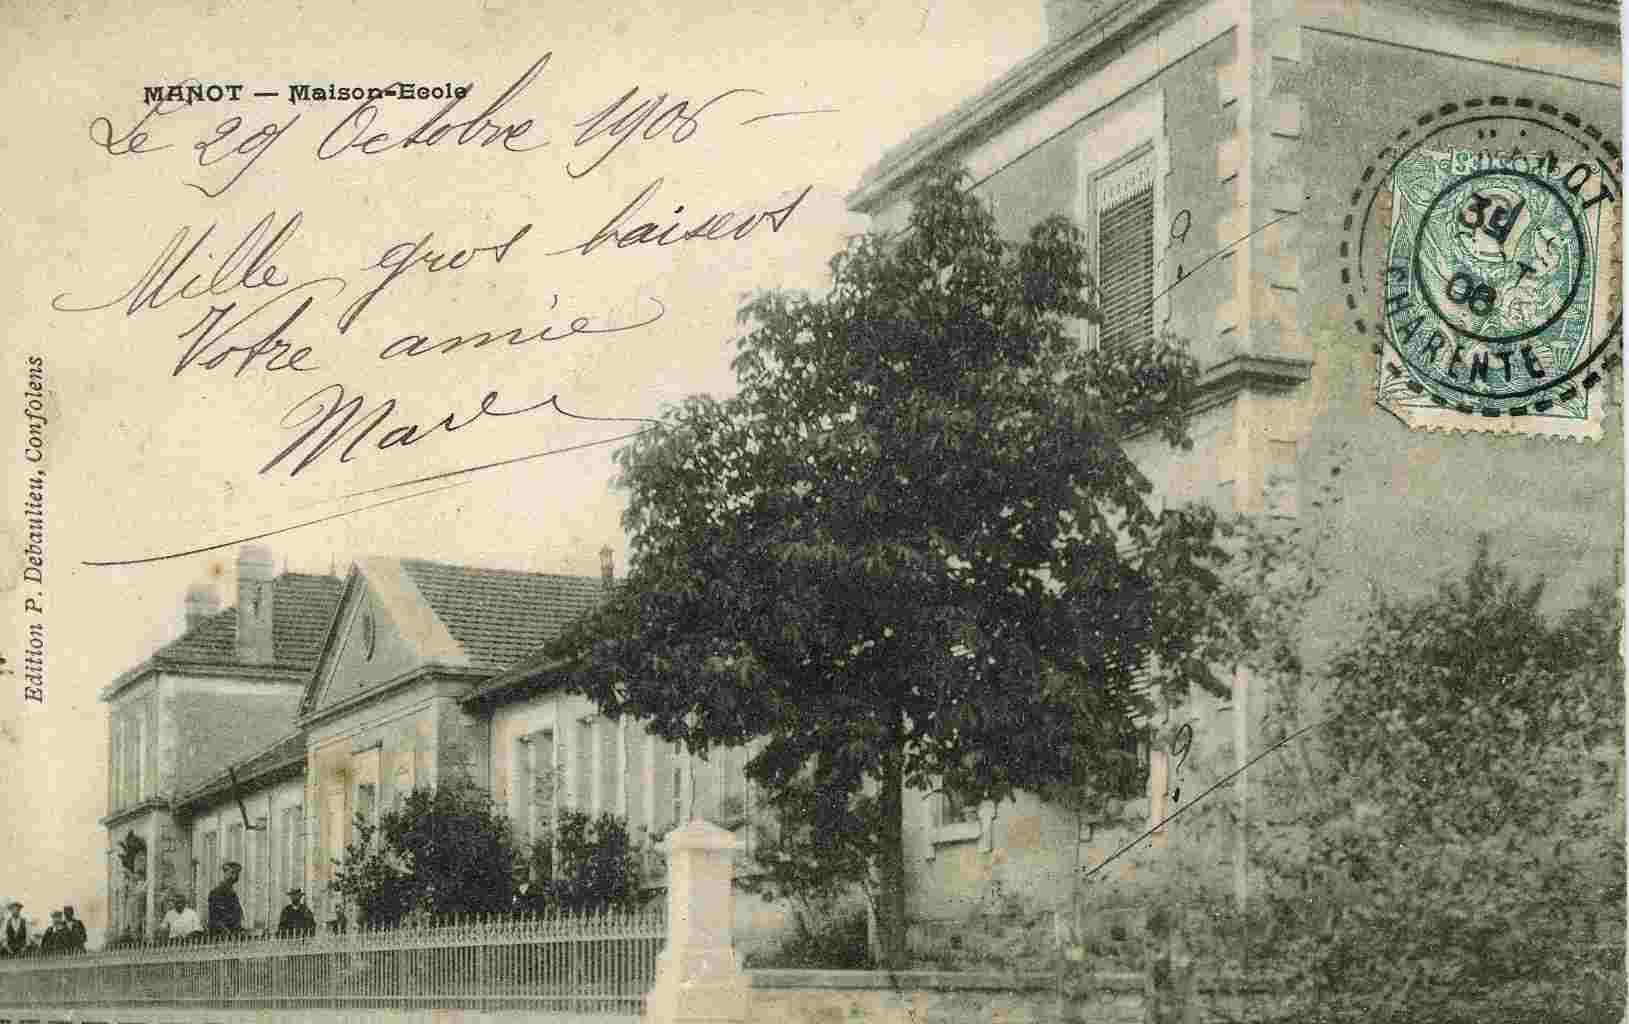 MANOT — Maison-Ecole
Le 29 Octobre 1906 —
Mille gros baisers
Votre amie
Edition P. Debaulieu, Confolens
MANOT
06
CHARENTE
?
?